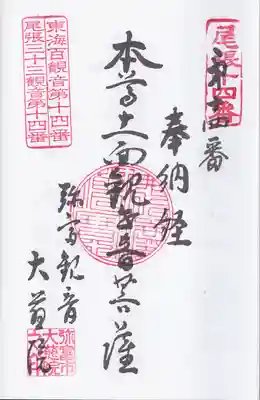 尾張十四番
第十四番
奉納経
本尊十一面観世音菩薩
弥富観音
大慈院
東海百観音第十四番
尾張三十三観音第十四番